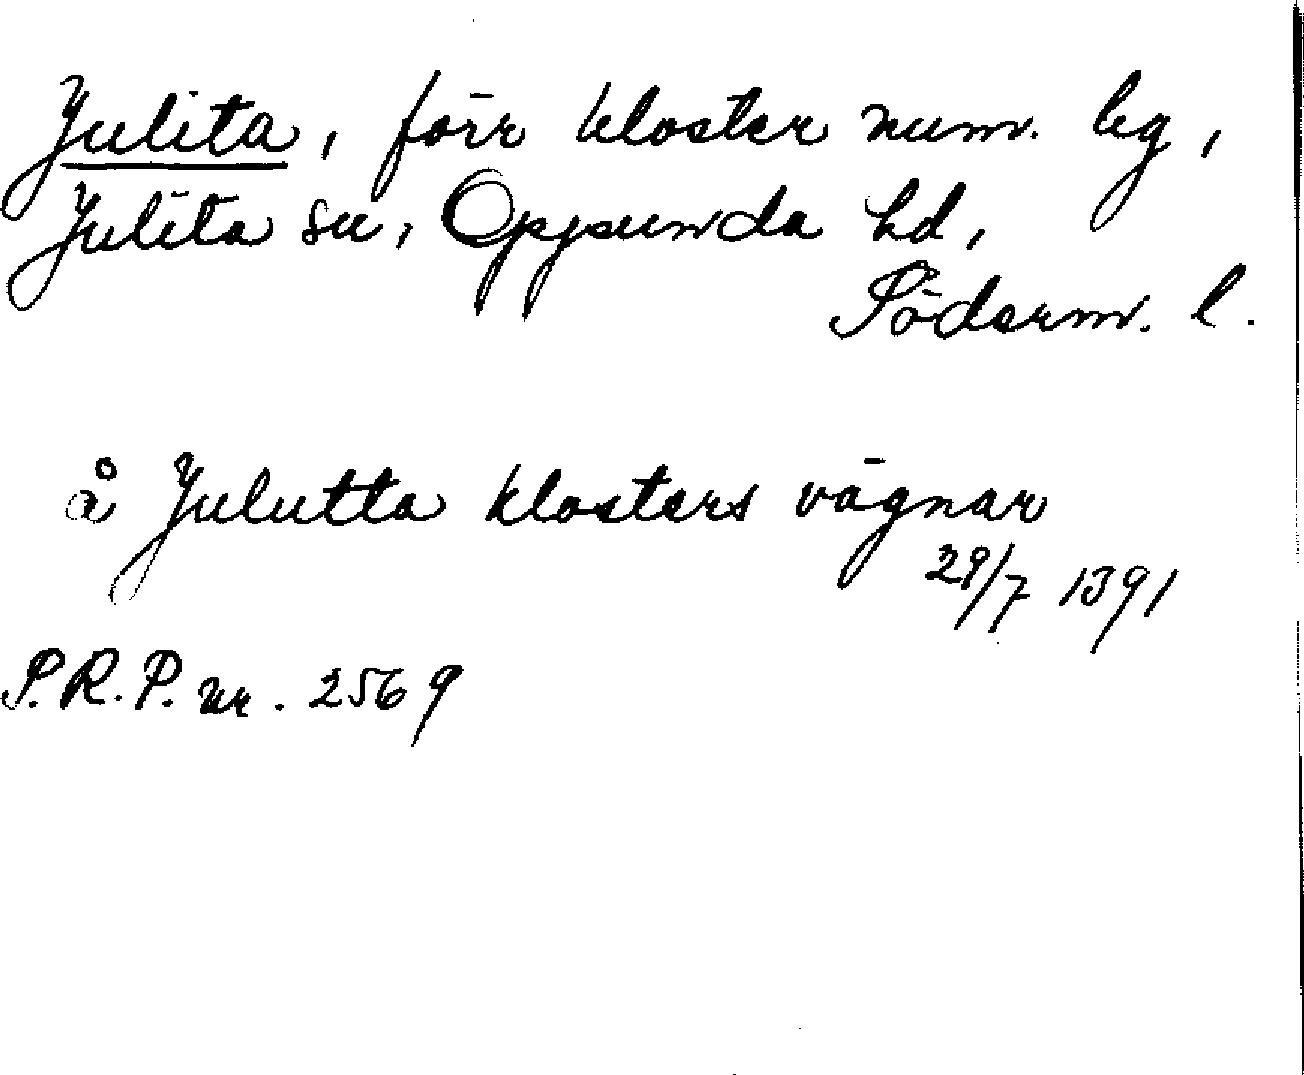 Julita, förr kloster num. bg,
Julita sn, Oppunda hd,
Söderm. l.
å Julutta klosters vägnar
29/7 1391
S.R.P. nr. 2569